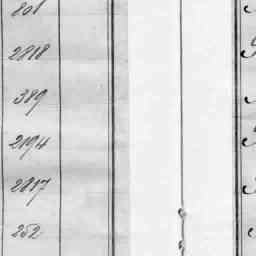 801
2818
389
2194
2817
252